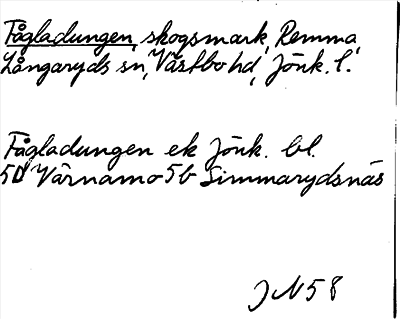 Fågladungen, skogsmark, Remma,
Långaryds sn, Västbo hd, Jönk. l.
Fågladungen ek Jönk. bl.
5D Värnamo 5b Simmarydsnäs
JN58